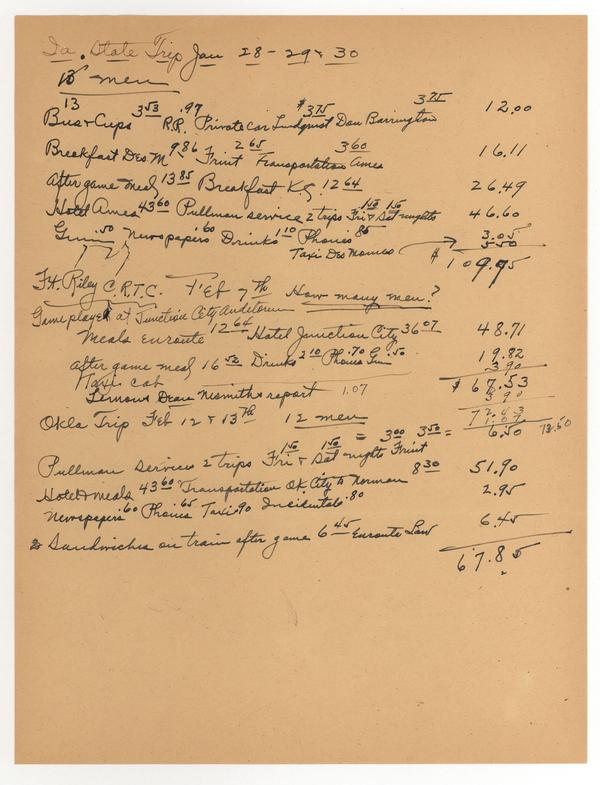 Ia. State Trip Jan 28-29 & 30
13 men
13
Bus & Cups 3.53 R.R. .97 Private car Lindquist $3.75 Don Barrington 3.75 12.00
Breakfast Des M 9.86 Fruit 2.65 Transportation Ames 3.60 16.11
After game meal 13.85 Breakfast K.C. 12.64 26.49
Hotel Ames 43.60 Pullman service 2 trips Fri 1.50 & Sat 1.50 nights 46.60
Gum .50 Newspapers .60 Drinks 1.10 Phones .85 3.05
Taxi Des Moines 5.50
$109.75
Ft. Riley C.R.T.C. Feb 7th How many men?
Game played at Junction City Auditorium
Meals Enroute 12.64 Hotel Junction City 36.07 48.71
After game meal 16.50 Drinks 2.10 Phones .70 Gum .50 19.82
Taxi cab 3.90
$67.53
Dean Nesmiths report 1.07
5.90
72.43
1.07
Okla Trip Feb 12 & 13th 12 men 73.50
Pullman service 2 trips Fri 1.50 & Sat 1.50 nights = 3.00 Fruit 3.50 = 6.50
Hotel & meals 43.60 Transportation Ok. City to Norman 8.30 51.90
Newspapers .60 Phones .65 Taxi .90 Incidentals .80 2.95
Sandwiches on train after game 6.45 Enroute Law 6.45
67.85